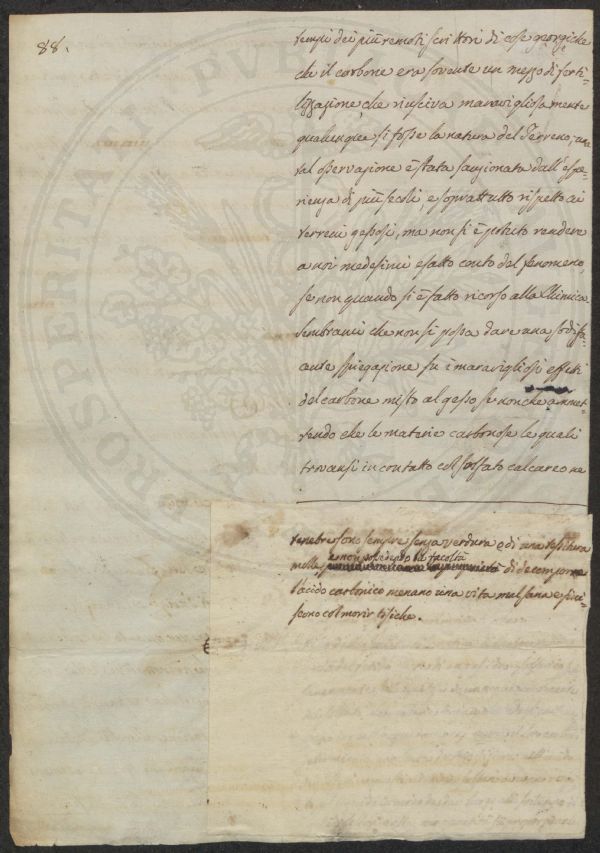 88.
tempi dei più remoti scrittori di cose georgiche
che il carbone era sovente un mezzo di forti-
lizzazione, che riusciva maravigliosamente
qualunque si fosse la natura del Terreno; una
tal osservazione è stata sanzionata dall'espe-
rienza di più secoli, e soprattutto rispetto ai
terreni gessosi, ma non si è potuto rendere
a noi medesimi esatto conto del fenomeno,
se non quando si è fatto ricorso alla Chimica.
Sembrami che non si possa dare una sodisfa-
cente spiegazione su i maravigliosi effetti
del carbone misto al gesso se non che amet-
tendo che le materie carbonose le quali
trovansi in contatto col solfato calcareo ne
tenebre sono sempre senza verdura e di una tessitura
molle e non possedendo la facoltà di decomporre
l'acido carbonico menano una vita mal sana e fini-
scono col morir tisiche.
PROSPERITATI PUBL